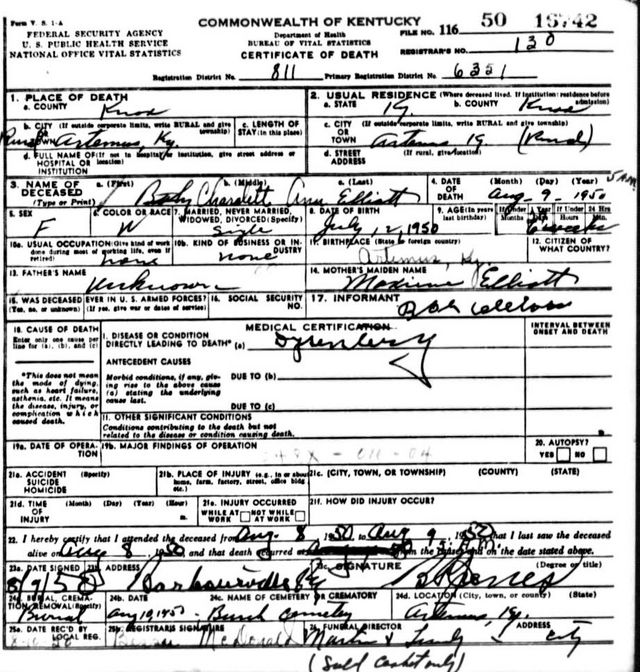 Form V. S. 1-A
FEDERAL SECURITY AGENCY
U. S. PUBLIC HEALTH SERVICE
NATIONAL OFFICE VITAL STATISTICS
COMMONWEALTH OF KENTUCKY
Department of Health
BUREAU OF VITAL STATISTICS
CERTIFICATE OF DEATH
FILE NO. 116 50 16742
REGISTRAR'S NO. 130
Registration District No. 811 Primary Registration District No. 6351
1. PLACE OF DEATH
a. COUNTY Knox
2. USUAL RESIDENCE (Where deceased lived. If institution: residence before admission)
a. STATE Ky b. COUNTY Knox
b. CITY (If outside corporate limits, write RURAL and give township)
OR Rural Artemus, Ky.
c. LENGTH OF STAY (in this place)
c. CITY (If outside corporate limits, write RURAL and give township)
OR TOWN Artemus Ky (Rural)
d. FULL NAME OF (If not in hospital or institution, give street address or location)
HOSPITAL OR INSTITUTION
d. STREET ADDRESS (If rural, give location)
3. NAME OF DECEASED (Type or Print)
a. (First) b. (Middle) c. (Last)
Baby Ann Elliott
4. DATE OF DEATH (Month) (Day) (Year)
Aug 9 1950 5 A.M.
5. SEX F
6. COLOR OR RACE W
7. MARRIED, NEVER MARRIED, WIDOWED, DIVORCED (Specify) Single
8. DATE OF BIRTH July 12, 1950
9. AGE (In years last birthday) If Under 1 Year If Under 24 Hrs
Months Days Hours Min.
weeks
10a. USUAL OCCUPATION (Give kind of work done during most of working life, even if retired) none
10b. KIND OF BUSINESS OR INDUSTRY none
11. BIRTHPLACE (State or foreign country) Artemus, Ky.
12. CITIZEN OF WHAT COUNTRY?
13. FATHER'S NAME Unknown
14. MOTHER'S MAIDEN NAME Maxine Elliott
15. WAS DECEASED EVER IN U. S. ARMED FORCES?
(Yes, no, or unknown) (If yes, give war or dates of service)
16. SOCIAL SECURITY NO.
17. INFORMANT Bob
18. CAUSE OF DEATH
Enter only one cause per line for (a), (b), and (c)
MEDICAL CERTIFICATION
INTERVAL BETWEEN ONSET AND DEATH
I. DISEASE OR CONDITION DIRECTLY LEADING TO DEATH* (a) Dysentery
ANTECEDENT CAUSES
*This does not mean the mode of dying, such as heart failure, asthenia, etc. It means the disease, injury, or complication which caused death.
Morbid conditions, if any, giving rise to the above cause (a) stating the underlying cause last.
DUE TO (b)
DUE TO (c)
11. OTHER SIGNIFICANT CONDITIONS
Conditions contributing to the death but not related to the disease or condition causing death.
19a. DATE OF OPERATION
19b. MAJOR FINDINGS OF OPERATION
20. AUTOPSY?
YES NO
21a. ACCIDENT SUICIDE HOMICIDE (Specify)
21b. PLACE OF INJURY (e.g., in or about home, farm, factory, street, office bldg., etc.)
21c. (CITY, TOWN, OR TOWNSHIP) (COUNTY) (STATE)
21d. TIME OF INJURY (Month) (Day) (Year) (Hour) m.
21e. INJURY OCCURRED
WHILE AT WORK NOT WHILE AT WORK
21f. HOW DID INJURY OCCUR?
22. I hereby certify that I attended the deceased from Aug. 8 1950 to Aug 9, 1950 that I last saw the deceased
alive on Aug 8, 1950 and that death occurred at from the causes and on the date stated above.
23a. DATE SIGNED 8/9/50
23b. ADDRESS Barbourville Ky
23c. SIGNATURE (Degree or title)
24a. BURIAL, CREMATION, REMOVAL (Specify) Burial
24b. DATE Aug 10, 1950
24c. NAME OF CEMETERY OR CREMATORY Cemetery
24d. LOCATION (City, town, or county) (State) Artemus, Ky.
25a. DATE REC'D BY LOCAL REG.
25b. REGISTRAR'S SIGNATURE McDonald
26. FUNERAL DIRECTOR Martin & ADDRESS city
(Sold Casket only)